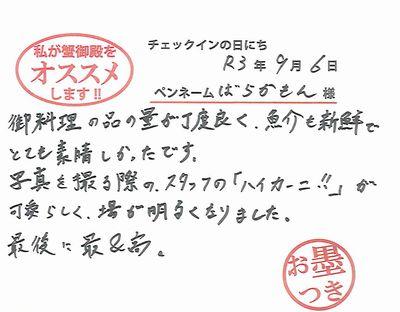 私が蟹御殿を
オススメ
します!!
チェックインの日にち
R3年9月6日
ペンネーム ばらかもん 様
御料理の品の量が丁度良く、魚介も新鮮で
とても素晴しかったです。
写真を撮る際の、スタッフの「ハイカーニ!!」が
可愛らしく、場が明るくなりました。
最後に最&高。
お墨
つき